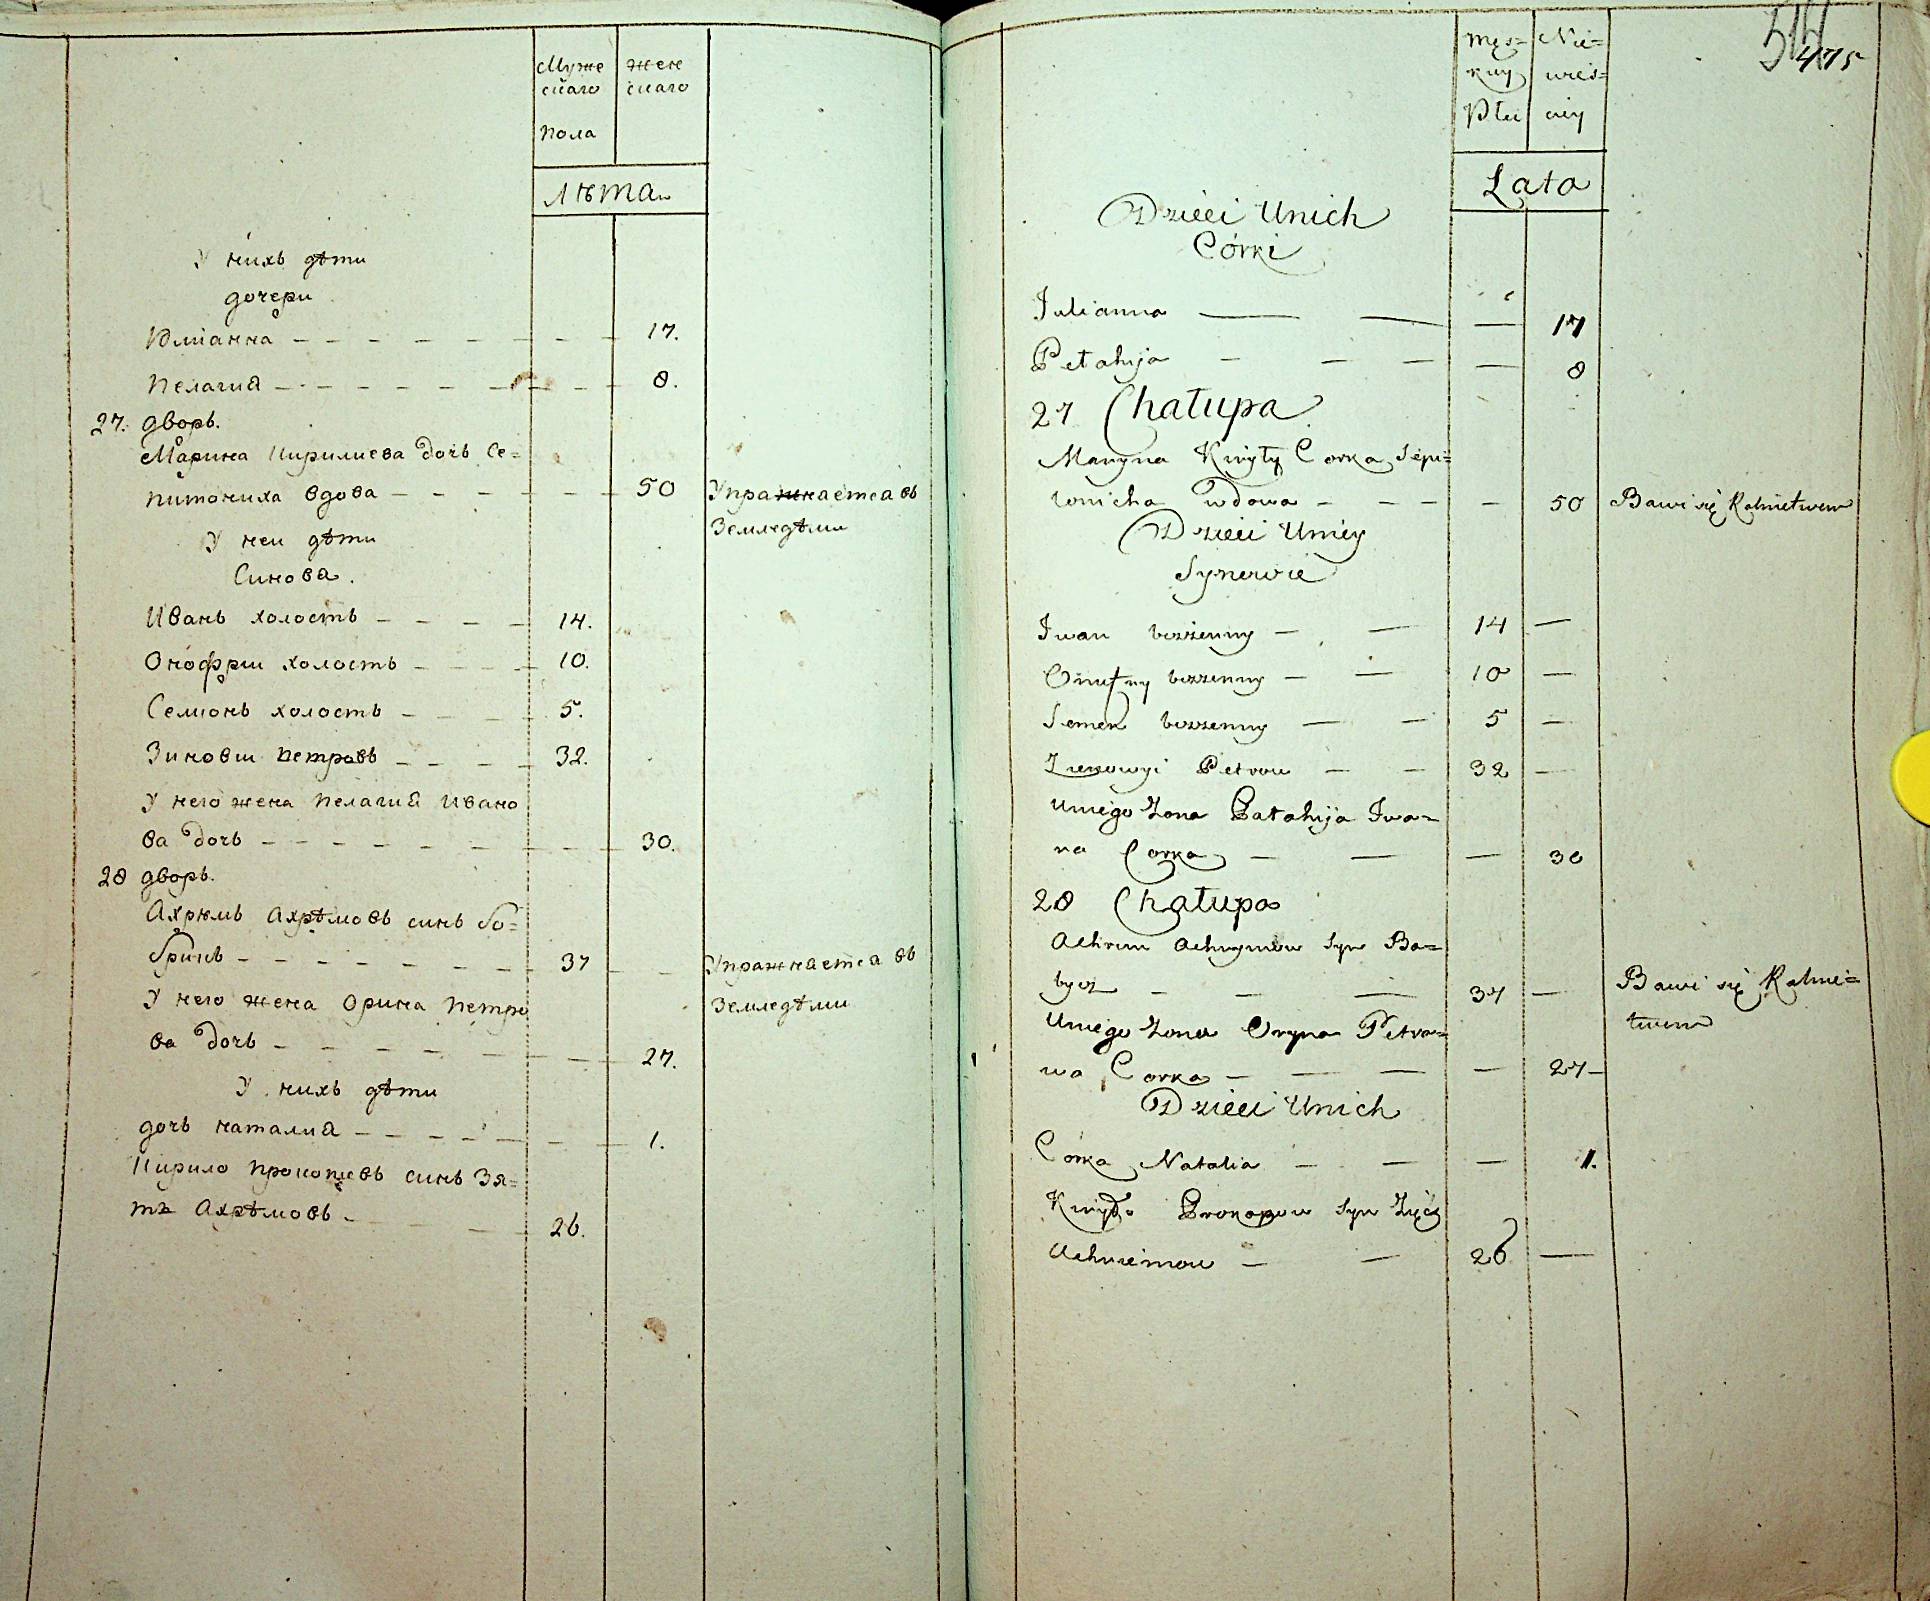 Муже
скаго
жен
скаго
пола
Лѣта
У нихъ дѣти
дочери
Юлианна 17.
Пелагия 8.
27. дворъ.
Марина Кирилиева дочь Се=
питониха вдова 50 Упражнается въ
Земледѣли
У неи дѣти
Синова.
Иванъ холостъ 14.
Онофрии холостъ 10.
Семионъ холостъ 5.
Зиновии Петровъ 32.
У него жена Пелагия Ивано
ва дочь 30.
28 дворъ.
Ахрѣмъ Ахрѣмовъ синъ Бо=
бричь 37 Упражнается въ
У него жена Орина Петро Земледѣли
ва дочь 27.
У нихъ дѣти
дочь Наталия 1.
Кирило Прокопиевъ синъ Зя=
ть Ахрѣмовъ 26.
475
Męs=
kiey
Płci
Nie=
wieś=
ciey
Lata
Dzieci Unich
Córki
Julianna 17
Pełahija 8
27 Chałupa
Maryna Kiryły Corka Sepi=
tonicha wdowa 50 Bawi się Rolnictwem
Dzieci Uniey
Synowie
Iwan bezżenny 14
Onufry bezżenny 10
Semen bezżenny 5
Zienowyi Petrow 32
Uniego Zona Pałahija Iwa=
na Corka 30
28 Chałupa
Achrim Achrymow Syn Bo=
bycz 37 Bawi się Rolnic=
twem
Uniego Zona Oryna Petro=
wa Corka 27
Dzieci Unich
Córka Natalia 1.
Kiryło Prokopow Syn Zięć
Achriemow 26